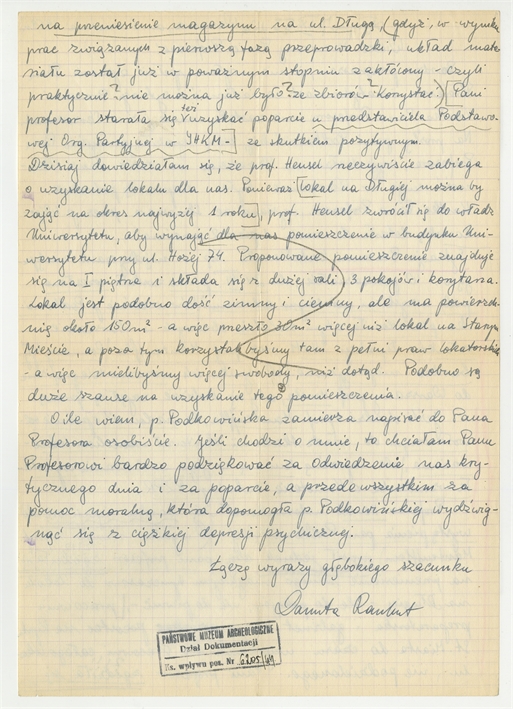 na przeniesienie magazynu na ul. Długą (gdyż, w wyniku
prac związanych z pierwszą fazą przeprowadzki, układ mate-
riału został już w poważnym stopniu zakłócony - czyli
praktycznie? nie można już było? ze zbiorów? korzystać.) [Pani
profesor starała się też uzyskać poparcie u przedstawiciela Podstawo-
wej Org. Partyjnej w IHKM-] ze skutkiem pozytywnym.
Dzisiaj dowiedziałam się, że prof. Hensel rzeczywiście zabiega
o uzyskanie lokalu dla nas. Ponieważ [lokal na Długiej można by
zająć na okres najwyżej 1 roku], prof. Hensel zwrócił się do władz
Uniwersytetu, aby wynająć dla nas pomieszczenie w budynku Uni-
wersytetu przy ul. Hożej 74. Proponowane pomieszczenie znajduje
się na I piętrze i składa się z dużej sali, 3 pokojów i korytarza.
Lokal jest podobno dość zimny i ciemny, ale ma powierzch-
nię około 150 m² - a więc przeszło 30 m² więcej niż lokal na Starym
Mieście, a poza tym korzystalibyśmy tam z pełni praw lokatorskich
- a więc mielibyśmy więcej swobody, niż dotąd. Podobno są
duże szanse na uzyskanie tego pomieszczenia.
O ile wiem, p. Podkowińska zamierza napisać do Pana
Profesora osobiście. Jeśli chodzi o mnie, to chciałam Panu
Profesorowi bardzo podziękować za odwiedzenie nas kry-
tycznego dnia i za poparcie, a przede wszystkim za
pomoc moralną, która dopomogła p. Podkowińskiej wydźwig-
nąć się z ciężkiej depresji psychicznej.
Łączę wyrazy głębokiego szacunku
Danuta Rauhut
PAŃSTWOWE MUZEUM ARCHEOLOGICZNE
Dział Dokumentacji
Ks. wpływu pos. Nr 6205/64